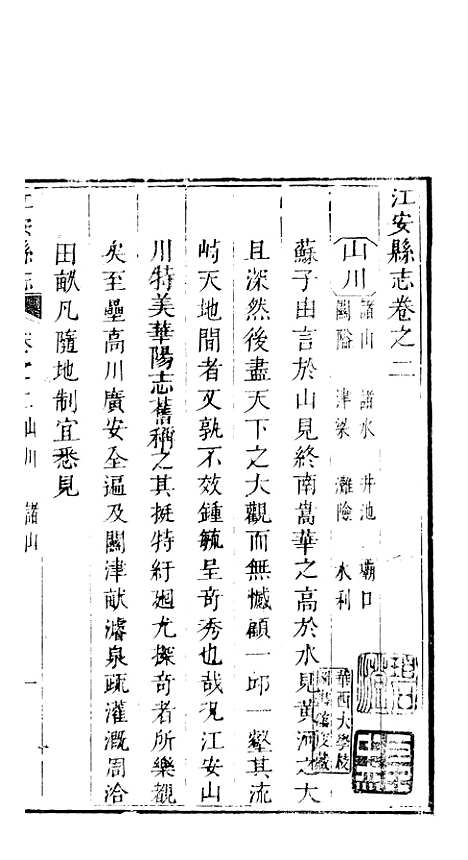 江安縣志卷之二
山川
諸山 諸水 井池 廟口
關隘 津梁 灘險 水利
蘇子由言於山見終南嵩華之高於水見黃河之大
且深然後盡天下之大觀而無憾顧一邱一壑其流
峙天地間者又孰不效鍾毓呈奇秀也哉況江安山
川特美華陽志舊稱之其挺特紆廻尤探奇者所樂觀
矣至壘高川廣安全遍及關津献濬泉疏灌溉周洽
田畝凡隨地制宜悉見
江安縣志 卷之二 山川 諸山 一
華西大學校
圖書舘受藏